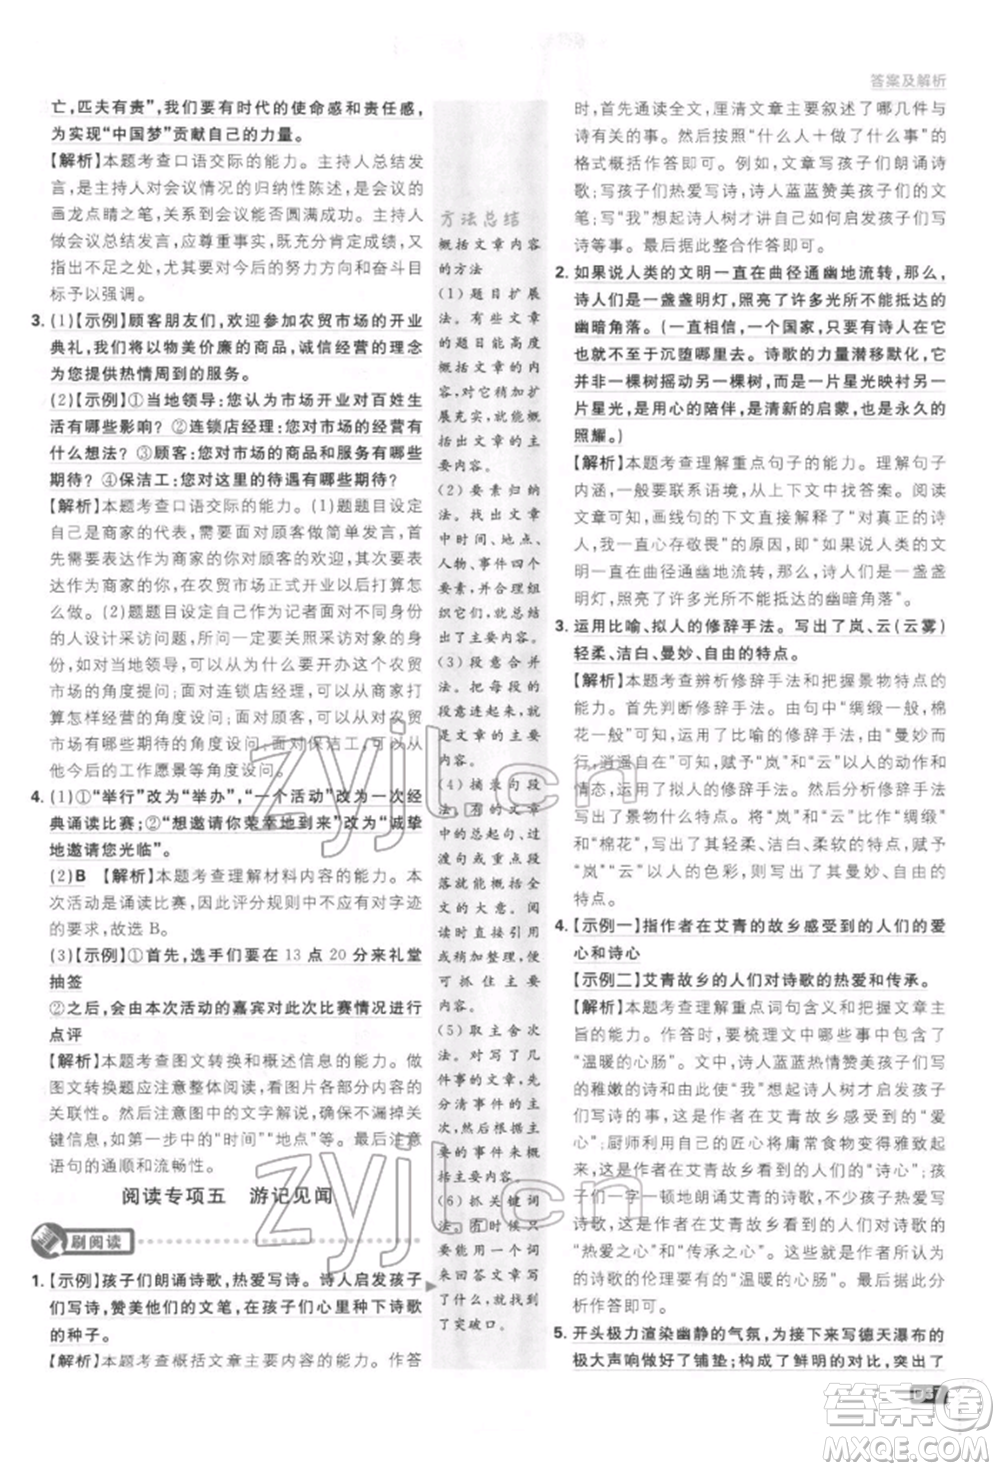 答案及解析
亡，匹夫有责”，我们要有时代的使命感和责任感，
为实现“中国梦”贡献自己的力量。
【解析】本题考查口语交际的能力。主持人总结发
言，是主持人对会议情况的归纳性陈述，是会议的
画龙点睛之笔，关涉会议能否圆满成功。主持人
做会议总结发言，应尊重事实，既充分肯定成绩，又
指出不足之处，尤其要对今后的努力方向和奋斗目
标予以强调。
3. (1)【示例】顾客朋友们，欢迎参加农贸市场的开业
典礼，我们将以物美价廉的商品，诚信经营的理念
为您提供热情周到的服务。
(2)【示例】①当地领导：您认为市场开业对百姓生
活有哪些影响？②连锁店经理：您对市场的经营有
什么想法？③顾客：您对市场的商品和服务有哪些
期待？④保洁工：您对这里的待遇有哪些期待？
【解析】本题考查口语交际的能力。(1)题题目设定
自己是商家的代表，需要面对顾客做简单发言，主
要表达作为商家的你对顾客的欢迎，其次要表
达作为商家的你，在农贸市场正式开业以后打算怎
么做。(2)题题目设定自己作为记者面对不同身份
的人设计采访问题，所问一定要关照采访对象的身
份，如对当地领导，可以从为什么要开办这个农贸
市场的角度提问；对连锁店经理，可以从商家打
算怎样经营的角度设问；对顾客，可以从对市场
有哪些期待的角度设问；面对保洁工，可以从对
今后的工作愿景等角度发问。
4. (1)①“举行”改为“举办”，“一个活动”改为一次经
典诵读比赛；②“想邀请你荣幸地到来”改为“诚挚
地邀请您光临”。
(2)B　【解析】本题考查理解材料内容的能力。本
次活动是诵读比赛，因此评分规则中不应有对字迹
的要求，故选 B。
(3)【示例】①首先，选手们要在 13 点 20 分来礼堂
抽签
②之后，会由本次活动的嘉宾对此次比赛情况进行
点评
【解析】本题考查图文转换和概述信息的能力。做
图文转换题应注意整体阅读，看图片各部分内容的
关联性。然后注意图中的文字解说，筛选并保留关
键信息，如第一步中的“时间”“地点”等。最后注意
语句的通顺和流畅性。
阅读专项五　游记见闻
刷阅读
1. 【示例】孩子们朗诵诗歌，热爱写诗。诗人启发孩子
们写诗，赞美他们的文笔，在孩子们心里种下诗歌
的种子。
【解析】本题考查概括文章主要内容的能力。作答
方法总结
概括文章内容
的方法
(1)题目扩展
法。有些文章
的题目能高度
概括文章内
容，对它稍加扩
展充实，就能概
括出文章的主
要内容。
(2)要素归纳
法。找出文章
中时间、地点、
人物、事件四个
要素，并合理组
织它们，总结
出文章的主要
内容。
(3)段意合并
法。把每段的
段意连起来，就
是文章的主要
内容。
(4)摘录句段
法。有的文章
中的总起句、过
渡句或重点段
落就能概括全
文的大意。阅
读时直接引用
或稍加整理，便
可抓住主要
内容。
(5)取主舍次
法。对写了几
件事的文章，先
分清事件的主
次，然后把主
要的事件来概
括文章内容。
(6)抓关键词
法。有时候，只
要能用一个词
来回答文章写
了什么，就找到
了突破口。
时，首先通读全文，厘清文章主要叙述了哪几件与
诗有关的事。然后按照“什么人＋做了什么事”的
格式概括作答即可。例如，文章写孩子们朗诵诗
歌；写孩子们热爱写诗，诗人蓝蓝赞美孩子们的文
笔；写“我”想起诗人树才讲自己如何启发孩子们写
诗等事。最后根据此概括作答即可。
2. 如果说人类的文明一直在曲径通幽地流转，那么，
诗人们是一盏盏明灯，照亮了许多光所不能抵达的
幽暗角落。(一直相信，一个国家，只要有诗人在它
便不至于沉堕哪里去。诗歌的力量潜移默化，它
并非一棵树摇动另一棵树，而是一片星光映衬另一
片星光，是用心的陪伴，是清新的启蒙，也是永久的
照耀。)
【解析】本题考查理解重点句子的能力。理解句子
内涵，一般要联系语境，从上下文中找答案。阅读
文章可知，画线句的下文直接解释了“对真正的诗
人，我一直心存敬畏”的原因，即如果说人类的文明
一直在曲径通幽地流转，那么，诗人们是一盏盏
明灯，照亮了许多光所不能抵达的幽暗角落。
3. 运用比喻、拟人的修辞手法。写出了岚、云(云雾)
轻柔、洁白、曼妙、自由的特点。
【解析】本题考查辨析修辞手法和把握景物特点的
能力。首先判断修辞手法。由句中“绸缎一般，棉
花一般”可知，使用了比喻的修辞手法，由“曼妙而
自由，逍遥而自在”可知，赋予“岚”“云”以人的
情态，使用了拟人的修辞手法。然后分析其写出了
景物怎样的特点。将“岚”和“云”比作“绸缎”
和“棉花”，写出其轻柔、洁白、柔软的特点；赋予
“岚”“云”以人的情态，写出其曼妙、自由的
特点。
4. 【示例一】指作者在艾青的故乡感受到的人们的爱
心和诗心。
【示例二】艾青故乡的人们对诗歌的热爱和传承。
【解析】本题考查理解重点词句含义和把握文章主
旨的能力。作答时，要梳理文中哪些事中包含了
“温暖的心肠”。文中，诗人蓝蓝热情赞美孩子们
的稚嫩的诗和由此使“我”想起诗人树才启发孩子
们写诗的事，这是作者在艾青故乡感受到的“爱
心”；厨师利用自己的匠心将庸常食物变得有了诗
意，这是作者在艾青故乡感受到的“诗心”。因
“我”一下倾刻地感受到艾青故乡的人们对待诗
歌，对待艾青，对待来参加诗歌活动的每一位诗人的
“热爱之心”和“传承之心”。他们用自己对待
诗歌的伦理打造着“温暖的心肠”。据以上分
析作答即可。
5. 开头极力渲染幽静的气氛，为接下来写德天瀑布的
极大声响做了铺垫；构成了鲜明的对比，突出了
D37
zyjl.cn
zyjl.cn
答案圈
MXQE.COM